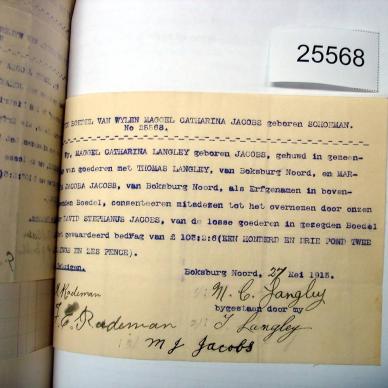 25568
BOEDEL VAN WYLEN MAGGEL CATHARINA JACOBS geboren SCHOEMAN.
No 25568.
MAGGEL CATHARINA LANGLEY geboren JACOBS, gehuwd in gemeen-
van goederen met THOMAS LANGLEY, van Boksburg Noord, en MAR-
JACOBA JACOBS, van Boksburg Noord, als Erfgenamen in boven-
Boedel, consenteeren mitsdezen tot het overnemen door onzen
DAVID STEPHANUS JACOBS, van de losse goederen in gezegden Boedel
gewaardeerd bedrag van £ 103:2:6 (EEN HONDERD EN DRIE POND TWEE
EN ZES PENCE).
Boksburg Noord, 27 Mei 1915.
Rademan
M. C. Langley
bygestaan door my
Rademan
T Langley
M J Jacobs